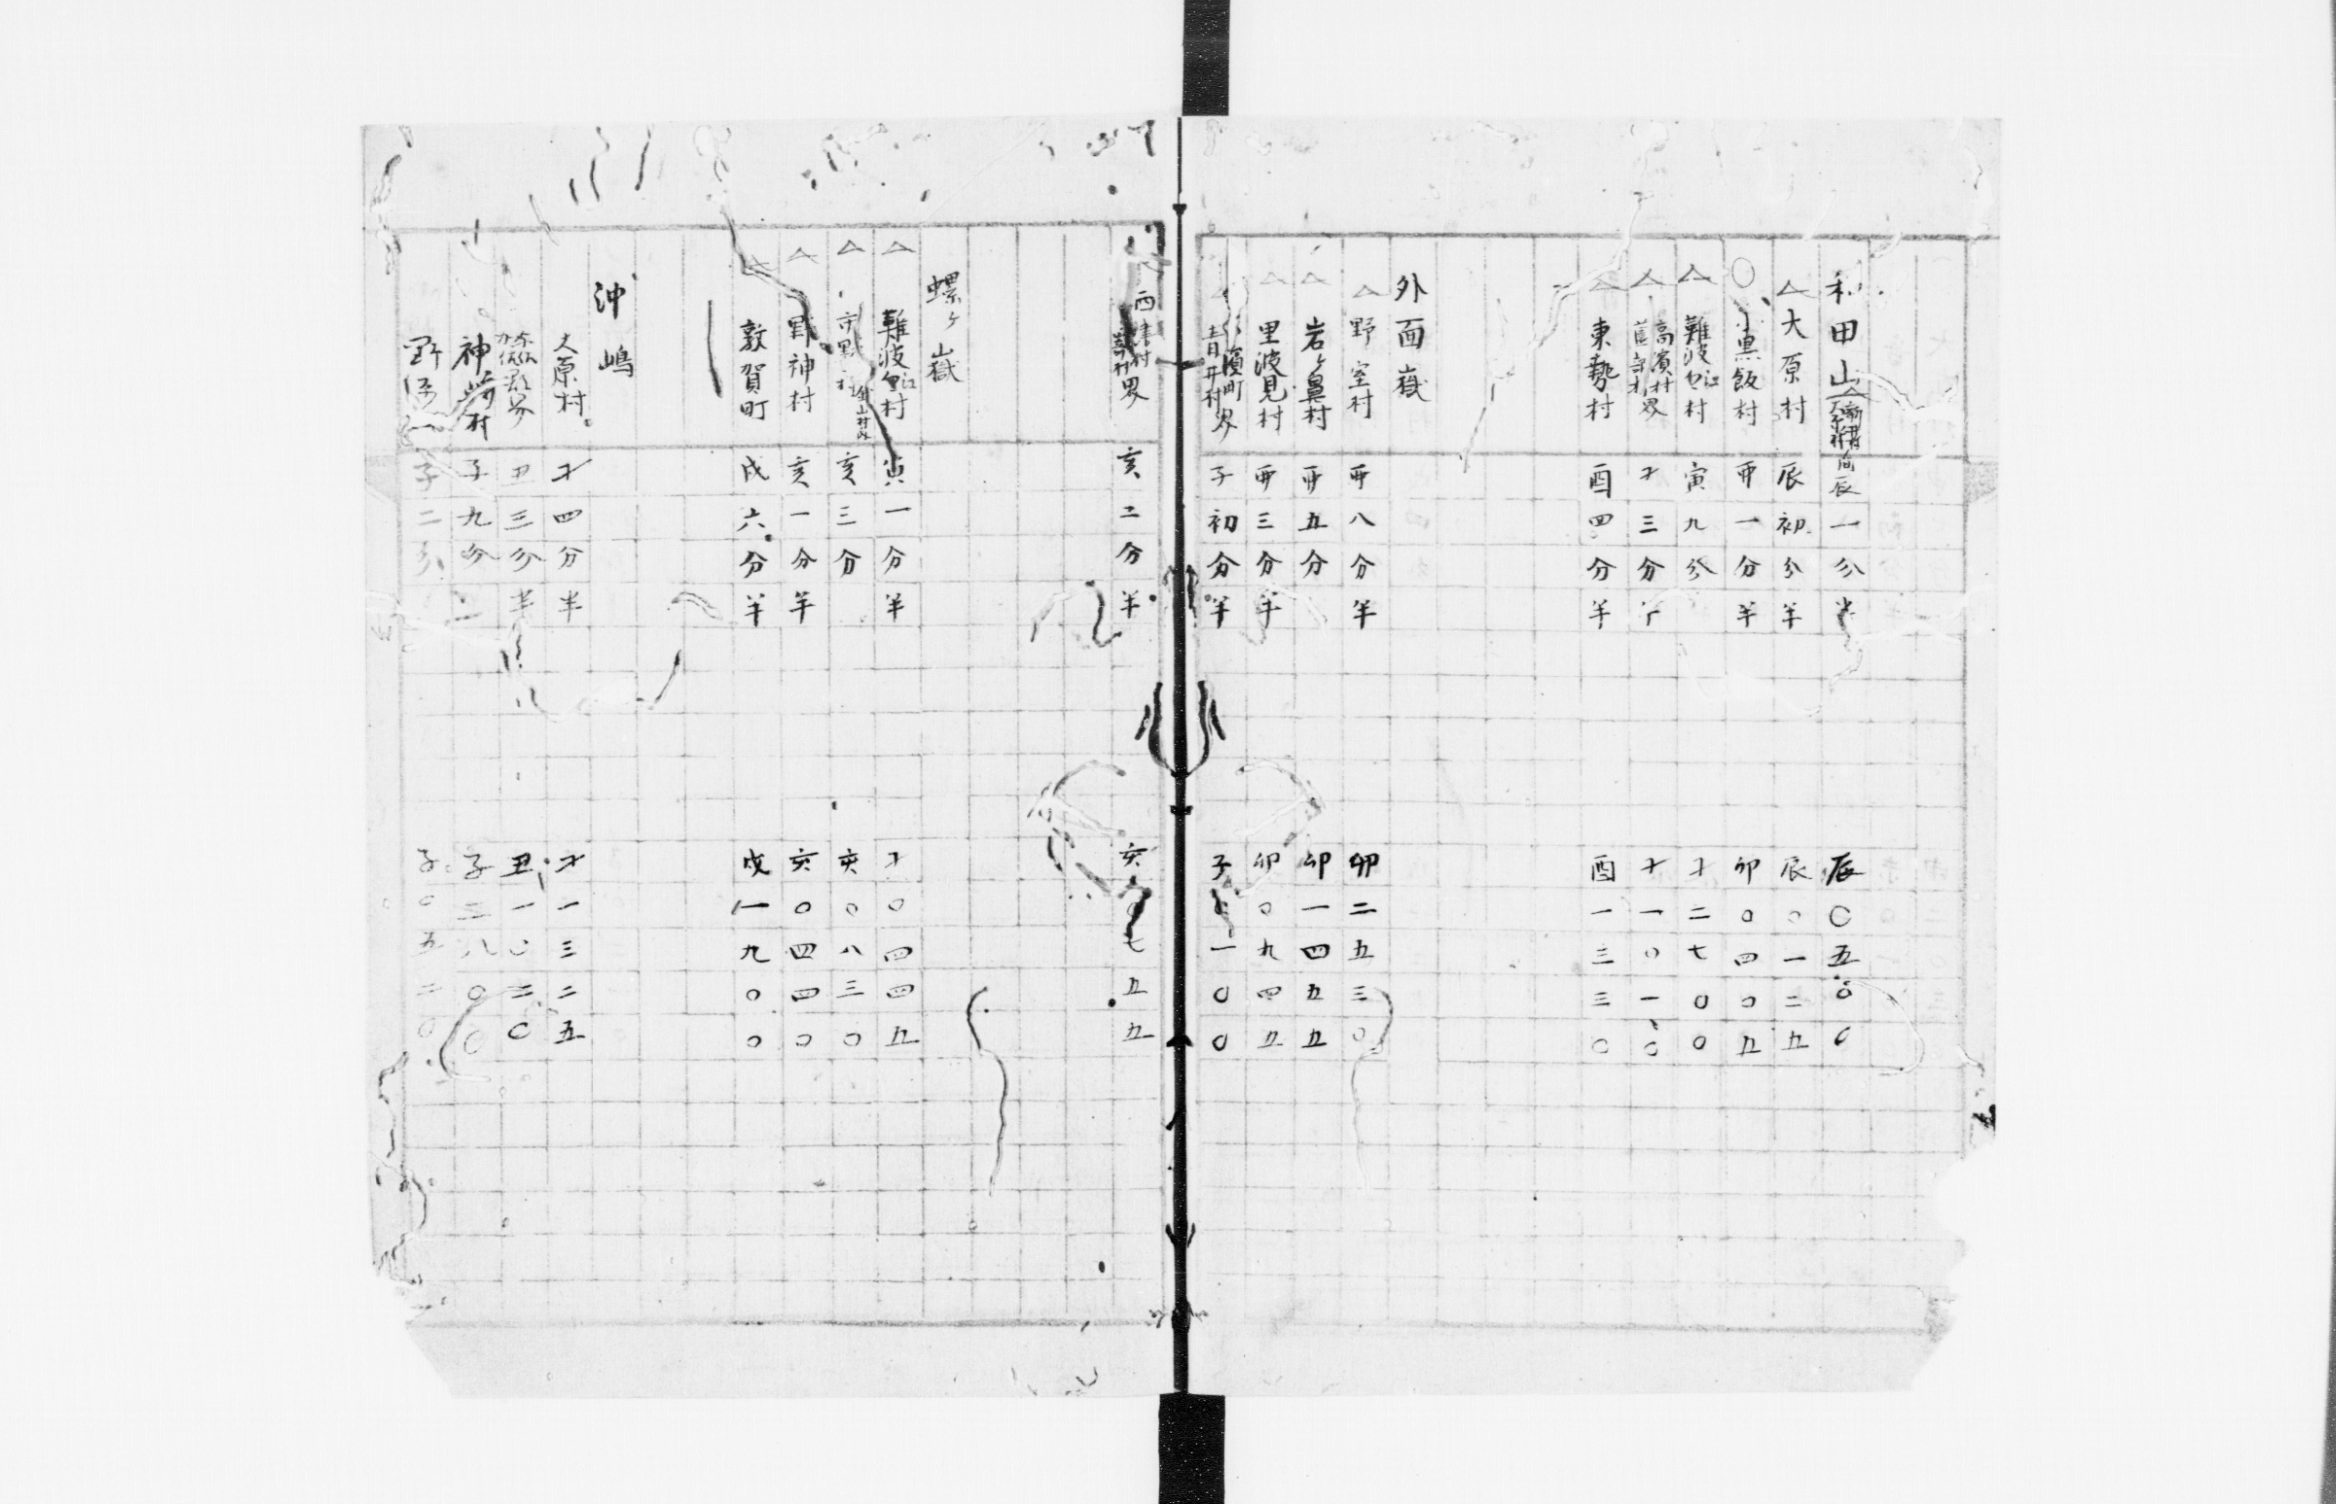 和田山 辰一分半 辰〇五〇〇
△大原村 辰初分半 辰〇一二五
〇黒飯村 卯一分半 卯〇四〇五
△難波江村 寅九分 寸二七〇〇
△高濱村界 寸三分半 寸一〇一〇
△東勢村 酉四分半 酉一三三〇
外面嶽
△野室村 卯八分半 卯二五三〇
△岩ヶ鼻村 卯五分 卯一四五五
△里波見村 卯三分半 卯〇九四五
濱町 青井村界 子初分半 子〇一〇〇
西津村 界 亥二分半 亥〇七五五
螺ヶ嶽
△難波江村 寅一分半 寸〇四四五
△ 亥三分 亥〇八三〇
△野神村 亥一分半 亥〇四四〇
△敦賀町 戌六分半 戌一九〇〇
沖嶋
大原村 寸四分半 寸一三二五
加佐郡界 丑三分半 丑一〇二〇
神崎村 子九分 子二八〇〇
子二分 子〇五二〇